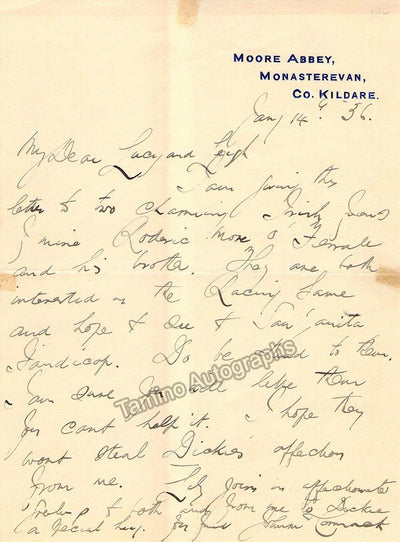 MOORE ABBEY,
MONASTEREVAN,
CO. KILDARE.
Jany 14th 36.
My Dear Lucy and Leigh
I am giving this
letter to two charming Irish friends
of mine Roderic More O'Ferrall
and his brother. They are both
interested in the Racing Game
and hope to see to San'anita
Handicap. Do be kind to them.
I am sure you will like them
you cant help it. I hope they
wont steal Dickies affection
from me. Lily joins in affectionate
to both and from me to Dickie
a special hug. John McCormack
Tamino Autographs